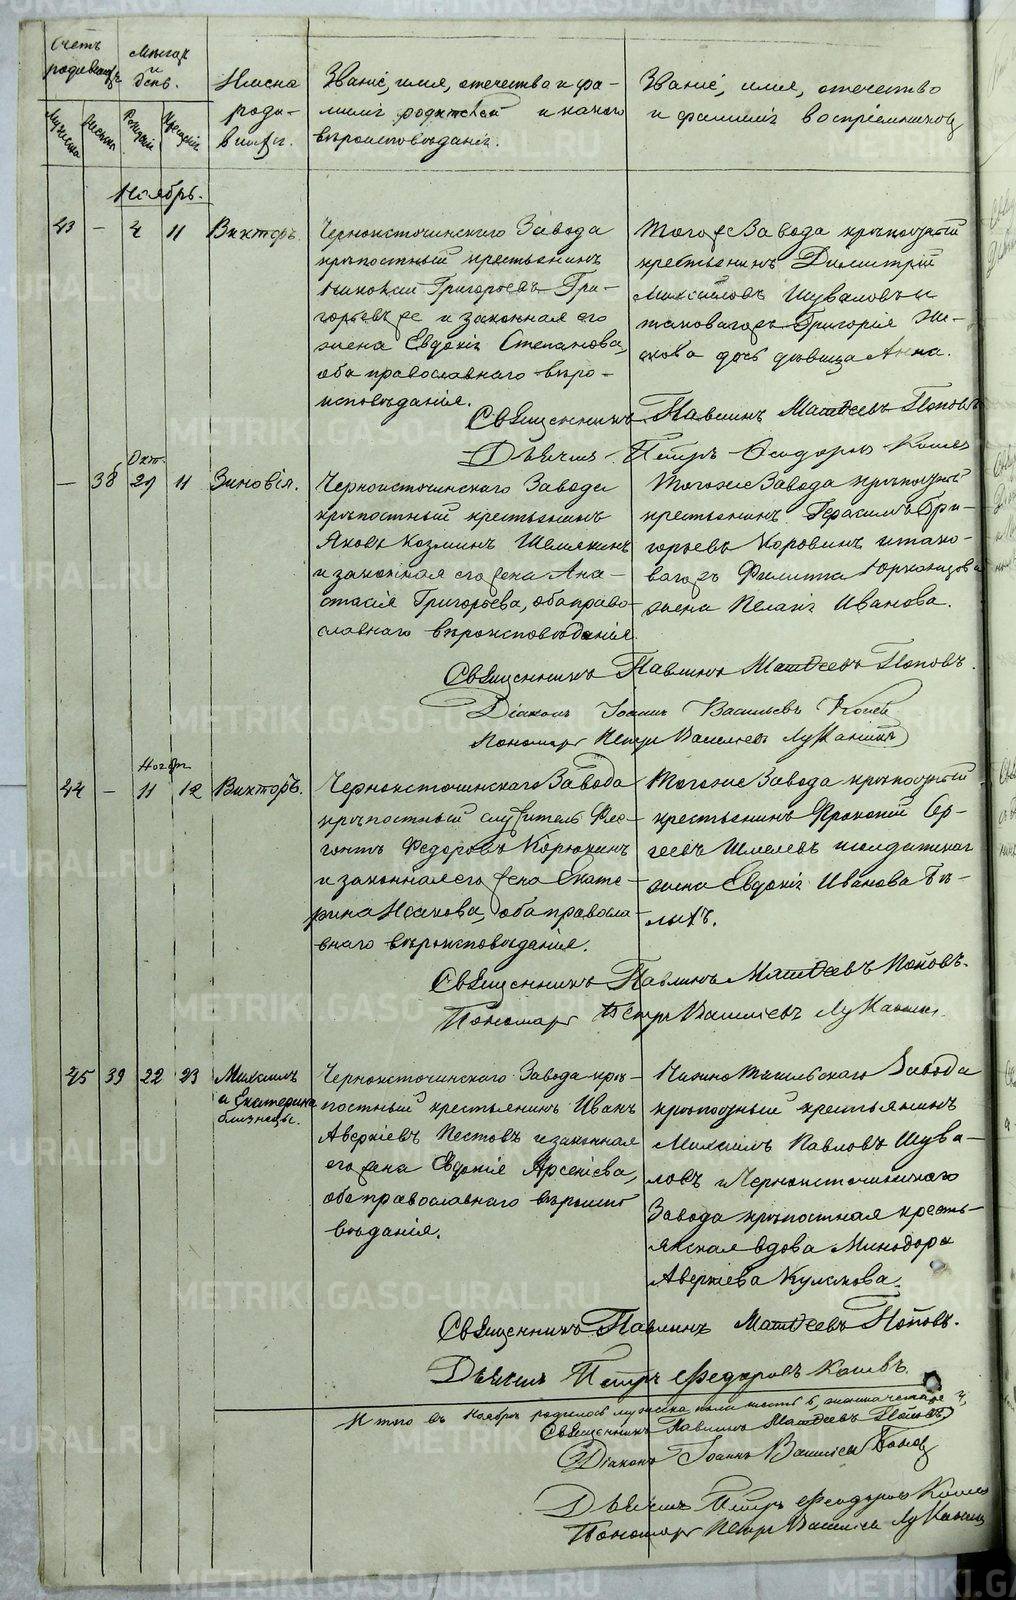 Счетъ родившихся
Мѣсяцъ и день.
Имена родившихся.
Званіе, имя, отечество и фамилія родителей и какого вѣроисповѣданія.
Званіе, имя, отечество и фамилія воспріемниковъ
Ноябрь.
43 — 4 11 Викторъ.
Черноисточинскаго Завода
крѣпостный крестьянинъ
Григорьевъ Гри-
горьевъ же и законная его
жена Евдокія Степанова,
оба православнаго вѣро-
исповѣданія.
Тогоже Завода крѣпостный
крестьянинъ Димитрій
Михайловъ Шуваловъ и
таковагожъ Григорія
дочь дѣвица Анна.
Священникъ Павлинъ Матѳеевъ Поповъ
Дьячекъ Петръ Ѳеодоровъ
— 38 Окт. 29 11 Зиновія.
Черноисточинскаго Завода
крѣпостный крестьянинъ
Яковъ Козминъ Шемякинъ
и законная его жена Ана-
стасія Григорьева, оба право-
славнаго вѣроисповѣданія
Тогоже Завода крѣпостный
крестьянинъ Герасимъ Гри-
горьевъ Коровинъ и тако-
вагожъ Филиппа
жена Пелагія Иванова.
Священникъ Павлинъ Матѳеевъ Поповъ.
Діаконъ Іоаннъ Васильевъ Поповъ
Пономарь Петръ Васильевъ Луканинъ
44 — Ноября 11 12 Викторъ.
Черноисточинскаго Завода
крѣпостный служитель Фле-
гонтъ Федоровъ Корюкинъ
и законная его жена Екате-
рина Исакова, оба правосла-
внаго вѣроисповѣданія.
Тогоже Завода крѣпостный
крестьянинъ Прокопій Сер-
геевъ Шмелевъ и солдатская
жена Евдокія Иванова Бѣ-
лыхъ.
Священникъ Павлинъ Матѳеевъ Поповъ.
Пономарь Петръ Васильевъ Луканинъ.
45 39 22 23 Михаилъ
и Екатерина
близнецы.
Черноисточинскаго Завода крѣ-
постный крестьянинъ Иванъ
Аверкіевъ Пестовъ и законная
его жена Евдокія Арсеніева,
оба православнаго вѣроиспо
вѣданія.
Нижнотагильскаго Завода
крѣпостный крестьянинъ
Михаилъ Павловъ Шува-
ловъ и Черноисточинскаго
Завода крѣпостная кресть-
янская вдова Минодора
Аверкіева Кулскова.
Священникъ Павлинъ Матѳеевъ Поповъ.
Дьячекъ Петръ Федоровъ
Итого въ Ноябрѣ родилось мужеска пола шесть 6, женска четыре 4,
Священникъ Павлинъ Матѳеевъ Поповъ
Діаконъ Іоаннъ Васильевъ Поповъ
Дьячекъ Петръ Ѳеодоровъ
Пономарь Петръ Васильевъ Луканинъ
METRIKI.GASO-URAL.RU